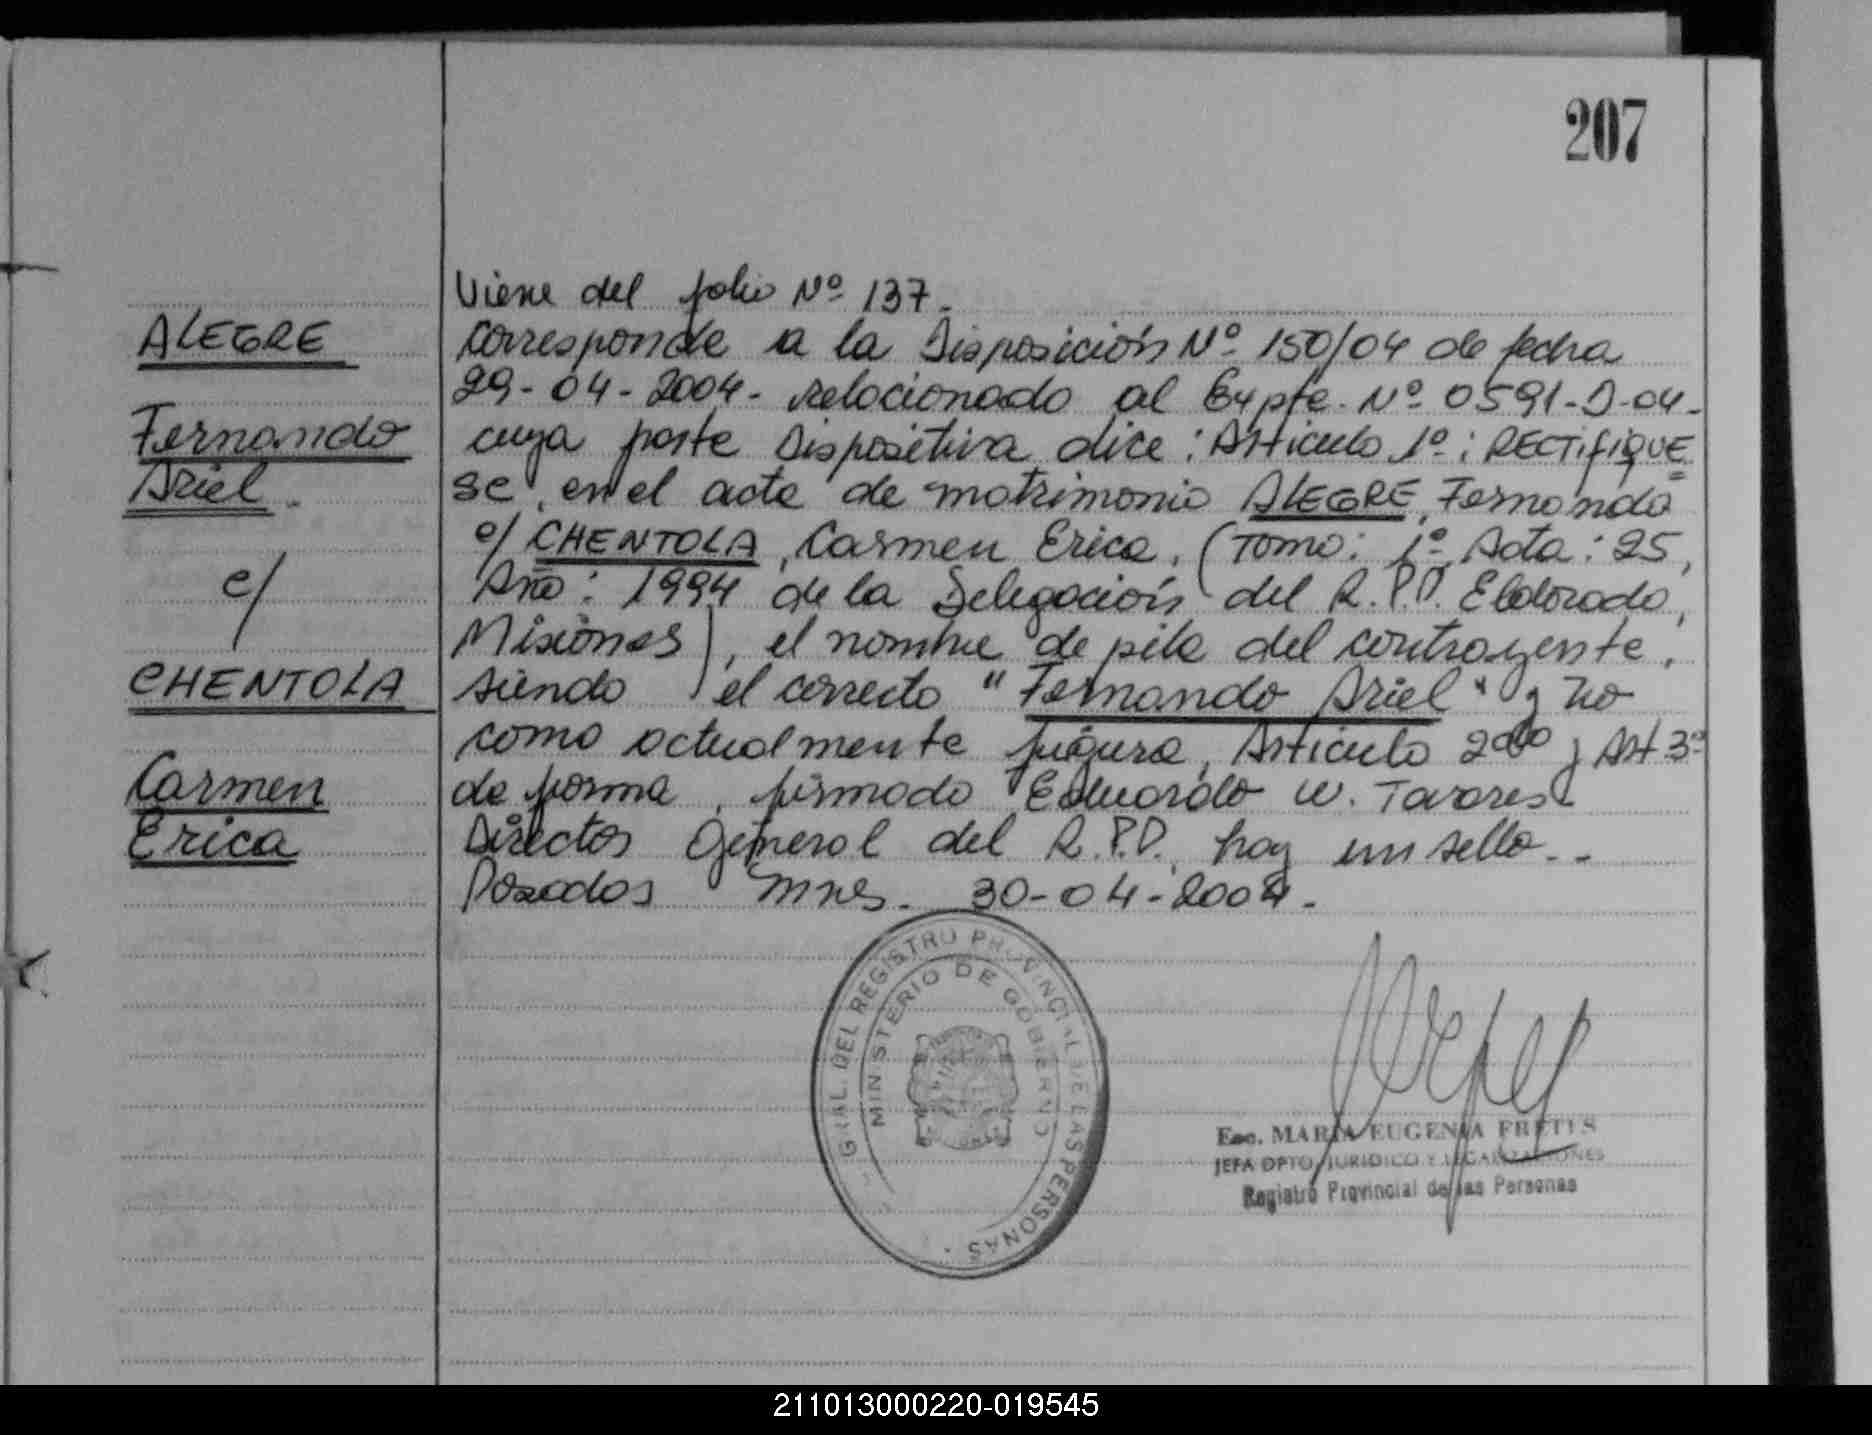 207
ALEGRE
Fernando
Ariel.
c/
CHENTOLA
Carmen
Erica
Viene del folio Nº 137.
Corresponde a la Disposición Nº 150/04 de fecha
29-04-2004- relacionado al Expte. Nº 0591-D-04-
cuya parte dispositiva dice: Articulo 1º: RECTIFIQUE
se, en el acta de matrimonio ALEGRE, Fernando
c/ CHENTOLA, Carmen Erica, (Tomo: 1º Acta: 25,
Año: 1994 de la Delegación del R.P.P. Eldorado,
Misiones), el nombre de pila del contrayente,
siendo el correcto "Fernando Ariel" y no
como actualmente figura, Articulo 2do y Art 3º
de forma, firmado Eduardo W. Tavares
Director General del R.P.P., hay un sello..
Posadas Mnes. 30-04-2004.
GRAL. DEL REGISTRO PROVINCIAL DE LAS PERSONAS
MINISTERIO DE GOBIERNO
Esc. MARIA EUGENIA FRETES
JEFA DPTO. JURIDICO Y LEGALIZACIONES
Registro Provincial de las Personas
211013000220-019545